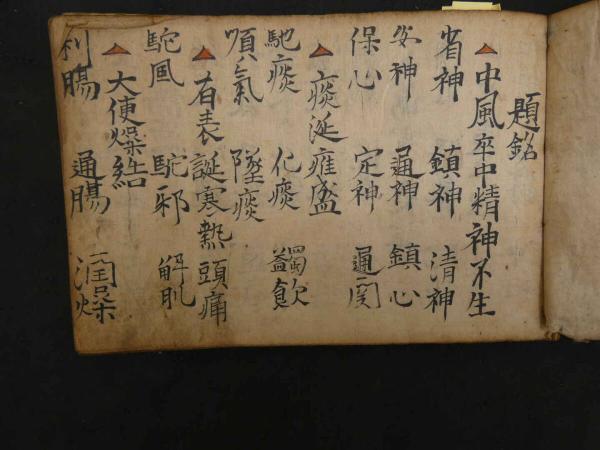 題銘
中風卒中精神不生
省神 鎮神 清神
安神 通神 鎮心
保心 定神 通関
痰涎雍盛
馳痰 化痰 蠲飲
順氣 墜痰
有表誕寒熱頭痛
駝風 駝邪 解肌
大使燥結
利腸 通腸 潤燥